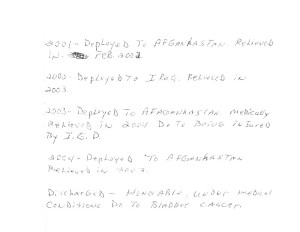 2001- Deployed To AFGANKASTAN. Relieved
in FEB 2002.
2002- Deployed To IRaq. Relieved in
2003.
2003- Deployed To AFAGANKASTAN. Medicaly
Relieved in 2004 Do To Being Injured
By I.E.D.
2004- Deployed To AFGANKASTAN
Relieved in
Discharged - Honorable, Under Medical
Conditions Do To Bladder Cancer